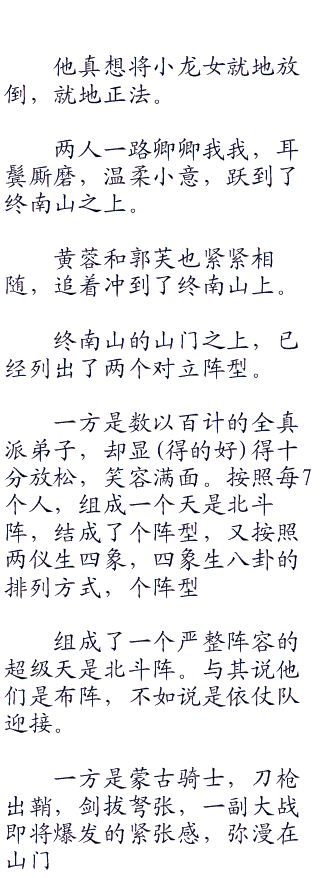 他真想将小龙女就地放
倒，就地正法。
两人一路卿卿我我，耳
鬓厮磨，温柔小意，跃到了
终南山之上。
黄蓉和郭芙也紧紧相
随，追着冲到了终南山上。
终南山的山门之上，已
经列出了两个对立阵型。
一方是数以百计的全真
派弟子，却显(得的好)得十
分放松，笑容满面。按照每7
个人，组成一个天是北斗
阵，结成了个阵型，又按照
两仪生四象，四象生八卦的
排列方式，个阵型
组成了一个严整阵容的
超级天是北斗阵。与其说他
们是布阵，不如说是依仗队
迎接。
一方是蒙古骑士，刀枪
出鞘，剑拔弩张，一副大战
即将爆发的紧张感，弥漫在
山门